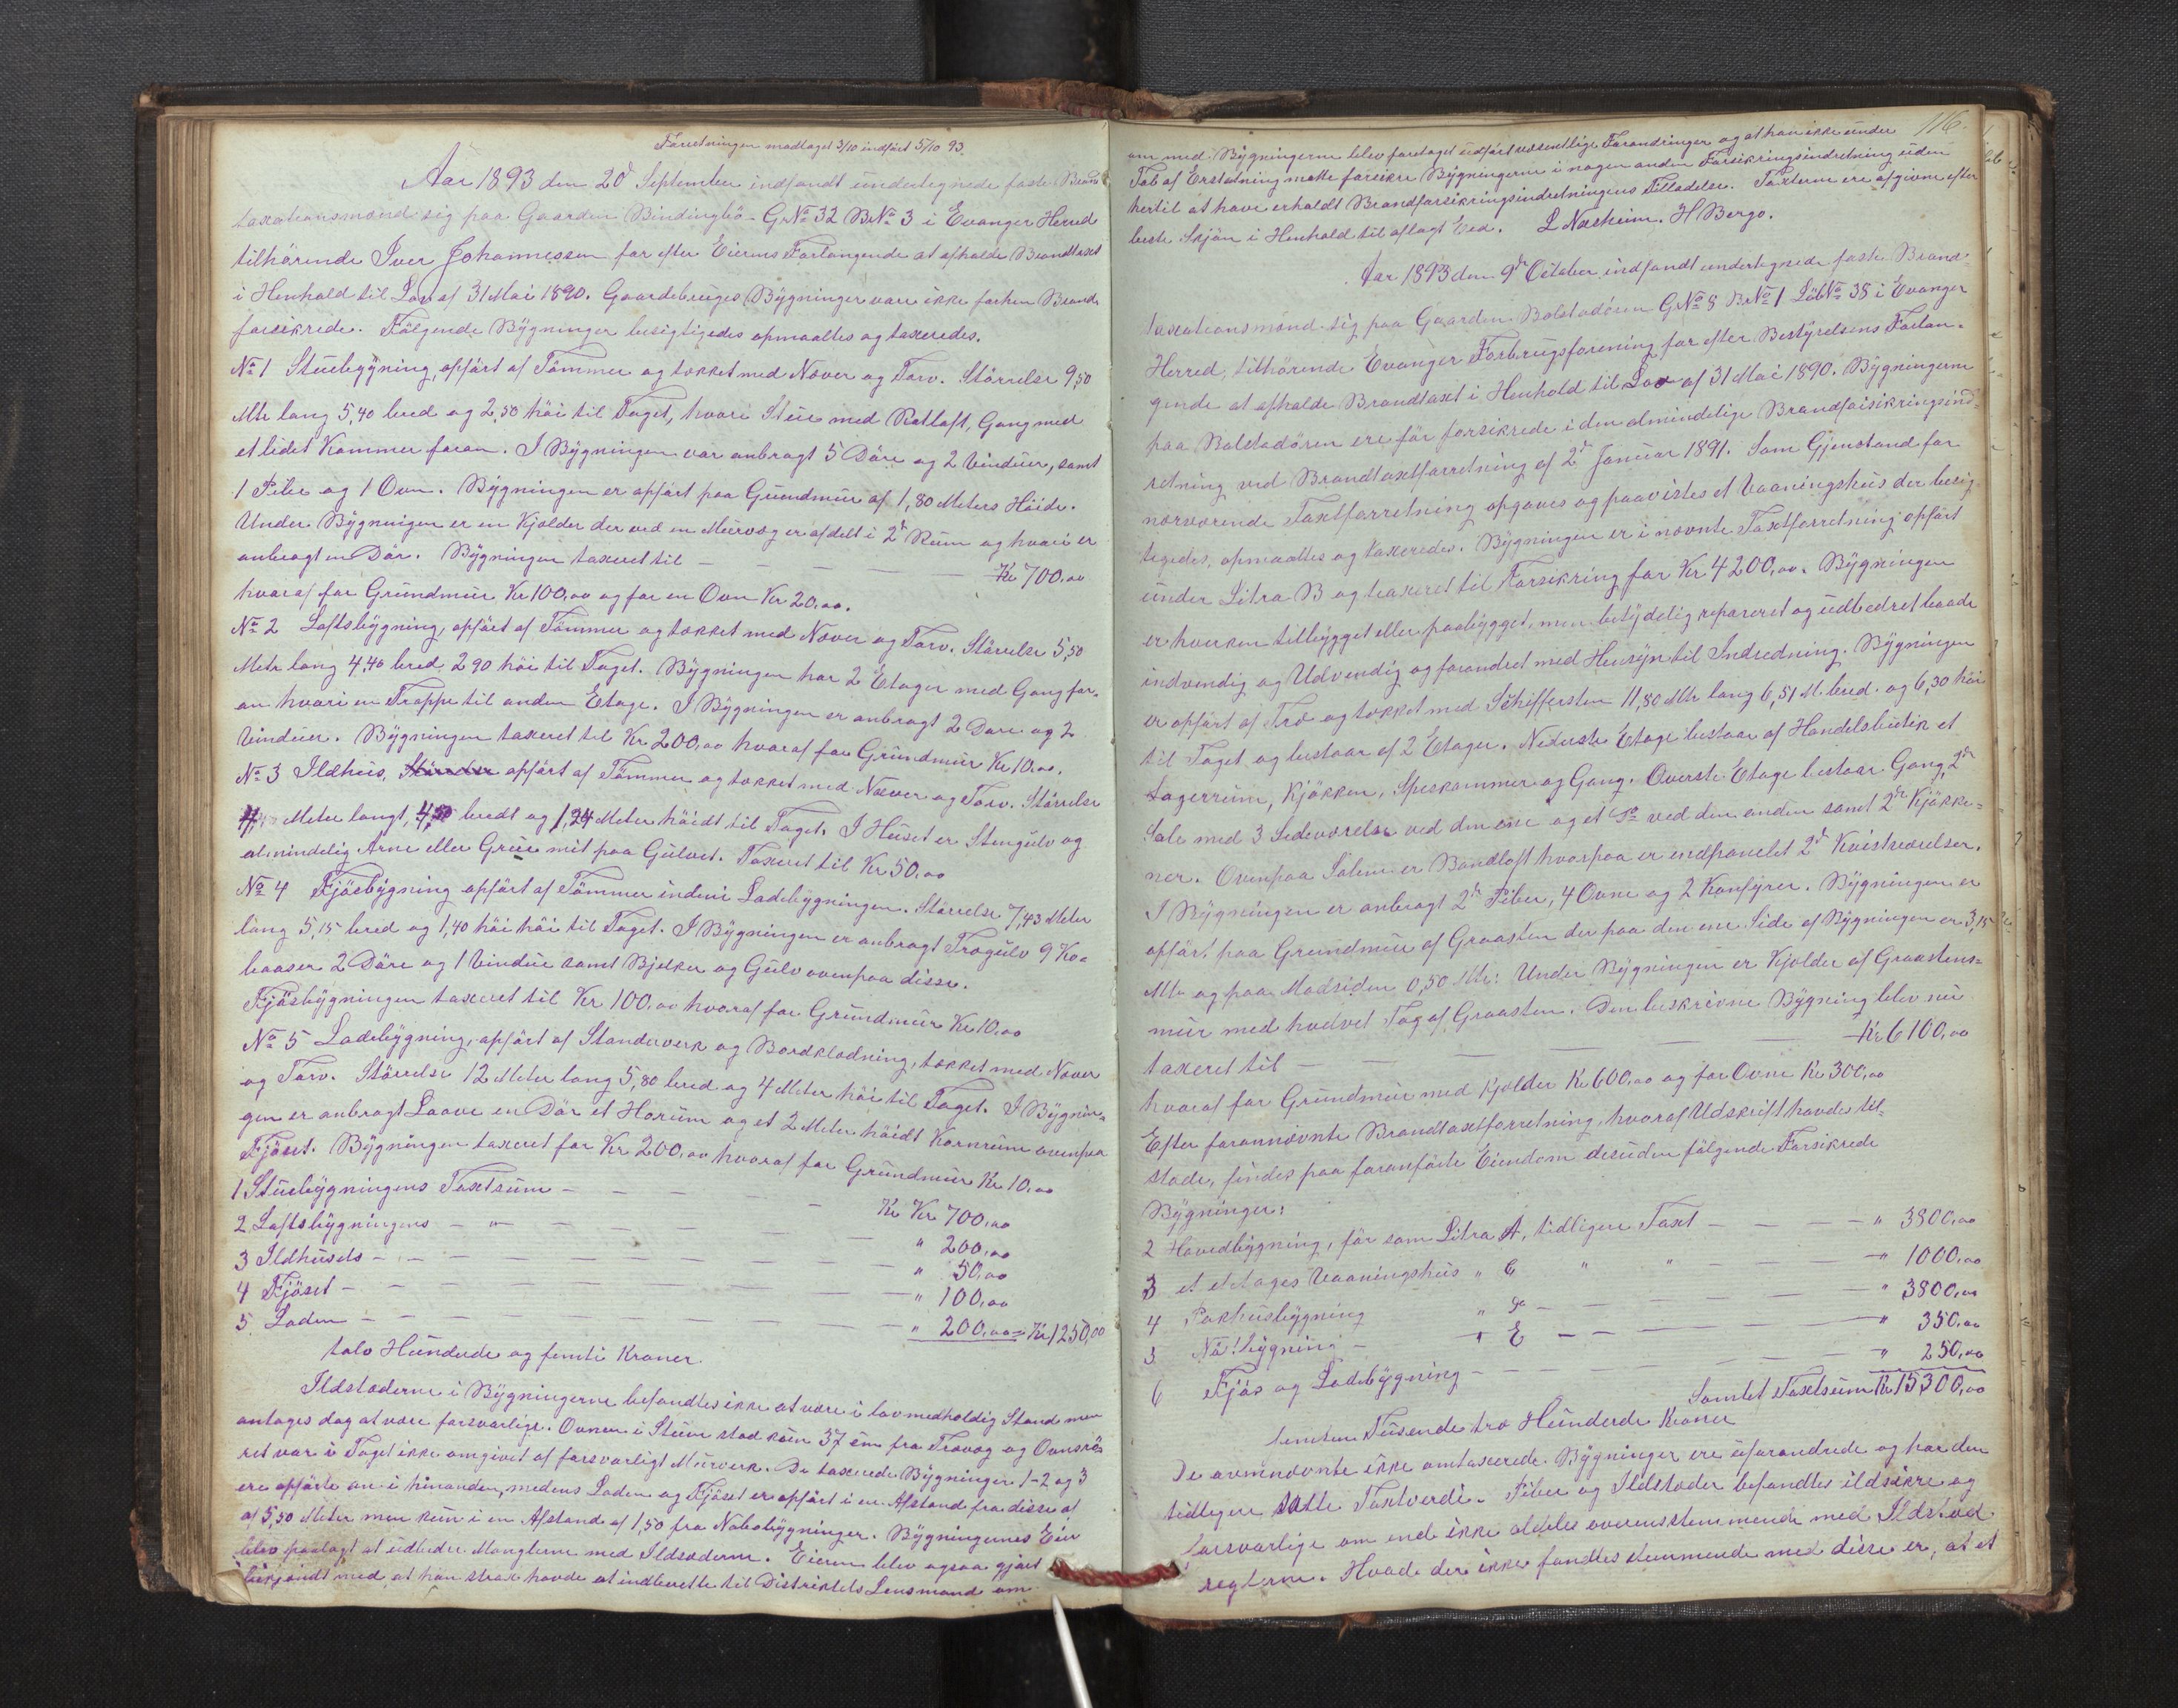 Forretningen modtaget 3/10 indført 5/10 93.
Aar 1893 den 20d September indfandt undertegnede faste Brand
taxationsmænd sig paa Gaarden Bindingbø G.No 32 B.No 3 i Evanger Herred
tilhörende Iver Johannessen for efter Eierens Forlangende at afholde Brandtaxt
i Henhold til Lov af 31 Mai 1890. Gaardsbruges Bygninger vare ikke forhen Brand-
forsikrede. Fölgende Bygninger besigtigedes opmaaltes og taxeredes.
No 1 Stuebygning, opfört af Tömmer og tækket med Næver og Torv. Störrelse 9,50
Mtr lang 5,40 bred og 2,50 höi til Taget, hvori Stue med Ratloft, Gang med
et lidet Kammer foran. I Bygningen var anbragt 5 Döre og 2 Vinduer, samt
1 Pibe og 1 Ovn. Bygningen er opfört paa Grundmur af 1,80 Meters Höide.
Under Bygningen er en Kjelder der ved en Murvæg er afdelt i 2de Rum og hvori er
anbragt en Dör. Bygningen taxeret til — — — — — Kr 700,00
hvoraf for Grundmur Kr 100,00 og for en Ovn Kr 20,00.
No 2 Loftsbygning, opfört af Tömmer og tækket med Næver og Torv. Störrelse 5,50
Metr lang 4,40 bred 2 90 höi til Taget. Bygningen har 2 Etager med Gang for-
an hvori en Trappe til anden Etage. I Bygningen er anbragt 2 Döre og 2
Vinduer. Bygningen taxeret til Kr 200,00 hvoraf for Grundmur Kr 10,00.
No 3 Ildhus, Störrelse opfört af Tömmer og tækket med Næver og Torv. Störrelse
Meter langt, bredt og 1,24 Meter höidt til Taget. I Huset er Stengulv og
almindelig Arne eller Grue mit paa Gulvet. Taxeret til Kr 50,00
No 4 Fjösbygning opfört af Tömmer indeni Ladebygningen. Störrelse 7,43 Meter
lang 5,15 bred og 1,40 höi höi til Taget. I Bygningen er anbragt Trægulv 9 Ko-
baaser 2 Döre og 1 Vindue samt Bjelker og Gulv ovenpaa disse.
Fjösbygningen taxeret til Kr 100,00 hvoraf for Grundmur Kr 10,00
No 5 Ladebygning, opfört af Standerverk og Bordklædning, tækket med Næver
og Torv. Störrelse 12 Meter lang 5,80 bred og 4 Meter höi til Taget. I Bygnin-
gen er anbragt Laave en Dör et Hörum og et 2 Meter höidt Kornrum ovenpaa
Fjöset. Bygningen taxeret for Kr 200,00 hvoraf for Grundmur Kr 10,00
1 Stuebygningens Taxtsum — — — — Kr Kr 700,00
2 Loftsbygningens — " — — — — — " 200,00
3 Ildhusets — — — — — — " 50,00
4 Fjöset — — — — — — " 100,00
5 Laden — — — — — — " 200,00 = Kr 1250,00
tolv Hundrede og femti Kroner.
Ildstæderne i Bygningerne befandtes ikke at være i lovmedholdig Stand men
antages dog at være forsvarlige. Ovnen i Stuen stod kun 37 cm fra Trævæg og Ovnsrö-
ret var i Taget ikke omgivet af forsvarligt Murverk. De taxerede Bygninger 1-2 og 3
ere opförte on i hinanden, medens Laden og Fjöset er opfört i en Afstand fra disse af
af 5,50 Meter men kun i en Afstand af 1,50 fra Nabobygninger. Bygningernes Eier
blev paalagt at udbedre Manglerne med Ildstæderne. Eieren blev ogsaa gjort
bekjendt med at han strax havde at indberette til Distriktets Lensmand om
116.
om med Bygningerne blev foretaget udfört væsentlige Forandringer og at han ikke under
Tab af Erstatning maatte forsikre Bygningerne i nogen anden Forsikringsindretning uden
hertil at have erholdt Brandforsikringsindretningens Tilladelse. Taxterne ere afgivne efter
beste Skjön i Henhold til aflagt Eed. L Næsheim. H Bergo.
Aar 1893 den 9de October indfandt undertegnede faste Brand-
taxationsmænd sig paa Gaarden Bolstadören G.No 8 B.No 1 LöbNo 38 i Evanger
Herred, tilhörende Evanger Forbrugsforening for efter Bestyrelsens Forlan-
gende at afholde Brandtaxt i Henhold til Lov af 31 Mai 1890. Bygningerne
paa Bolstadören ere för forsikrede i den almindelige Brandforsikringsind-
retning ved Brandtaxtforretning af 2de Januar 1891. Som Gjenstand for
nærværende Taxtforretning opgaves og paavistes et Vaaningshus der besig-
tigedes, opmaaltes og taxeredes. Bygningen er i nævnte Taxtforretning opfört
under Litra B og taxeret til Forsikring for Kr 4200,00. Bygningen
er hverken tilbygget eller paabygget, men betydelig repareret og udbedret baade
indvendig og Udvendig og forandret med Hensyn til Indredning. Bygningen
er opfört af Træ og tækket med Schiffersten 11,80 Mtr lang 6,51 M. bred. og 6,30 höi
til Taget og bestaar af 2 Etager. Nederste Etage bestaar af Handelsbutik et
Lagerrum, Kjökken, Spiskammer og Gang. Överste Etage bestaar Gang, 2de
Sale med 3 Sideværelse ved den ene og et Do ved den anden samt 2de Kjökke-
ner. Ovenpaa Salene er Bandloft hvorpaa er indpanelet 2de Kvistværelser.
I Bygningen er anbragt 2de Piber, 4 Ovne og 2 Komfyrer. Bygningen er
opfört paa Grundmur af Graasten der paa den ene Side af Bygningen er 3,15
Mtr og paa Modsiden 0,50 Mtr. Under Bygningen er Kjelder af Graastens-
mur med hvelvet Tag af Graasten. Den beskrivne Bygning blev nu
taxeret til — — — — — Kr 6100,00
hvoraf for Grundmur med Kjelder Kr 600,00 og for Ovne Kr 300,00
Efter forannævnte Brandtaxtforretning, hvoraf Udskrift havdes til-
stede, findes paa foranförte Eiendom desuden fölgende Forsikrede
Bygninger:
2 Hovedbygning, för som Litra A, tidligere Taxt — — — — " 3800,00
3 et etetages Vaaningshus " C " " — — — — " 1000,00
4 Pakhusbygning " Do — — — — " 3800,00
5 bygning — " E — — — — " 350,00
6 Fjös og Ladebygning — — — — — " 250,00
Samlet Taxtsum Kr 15300,00
femten Tusende tre Hundrede Kroner
De ovennævnte ikke omtaxerede Bygninger ere uforandrede og har den
tidligere satte Taxtverdi. Piber og Ildstæder befandtes ildsikre og
forsvarlige om end ikke aldeles overensstemmende med Ildsted
reglerne. Hvad der ikke fandtes stemmende med disse er, at et